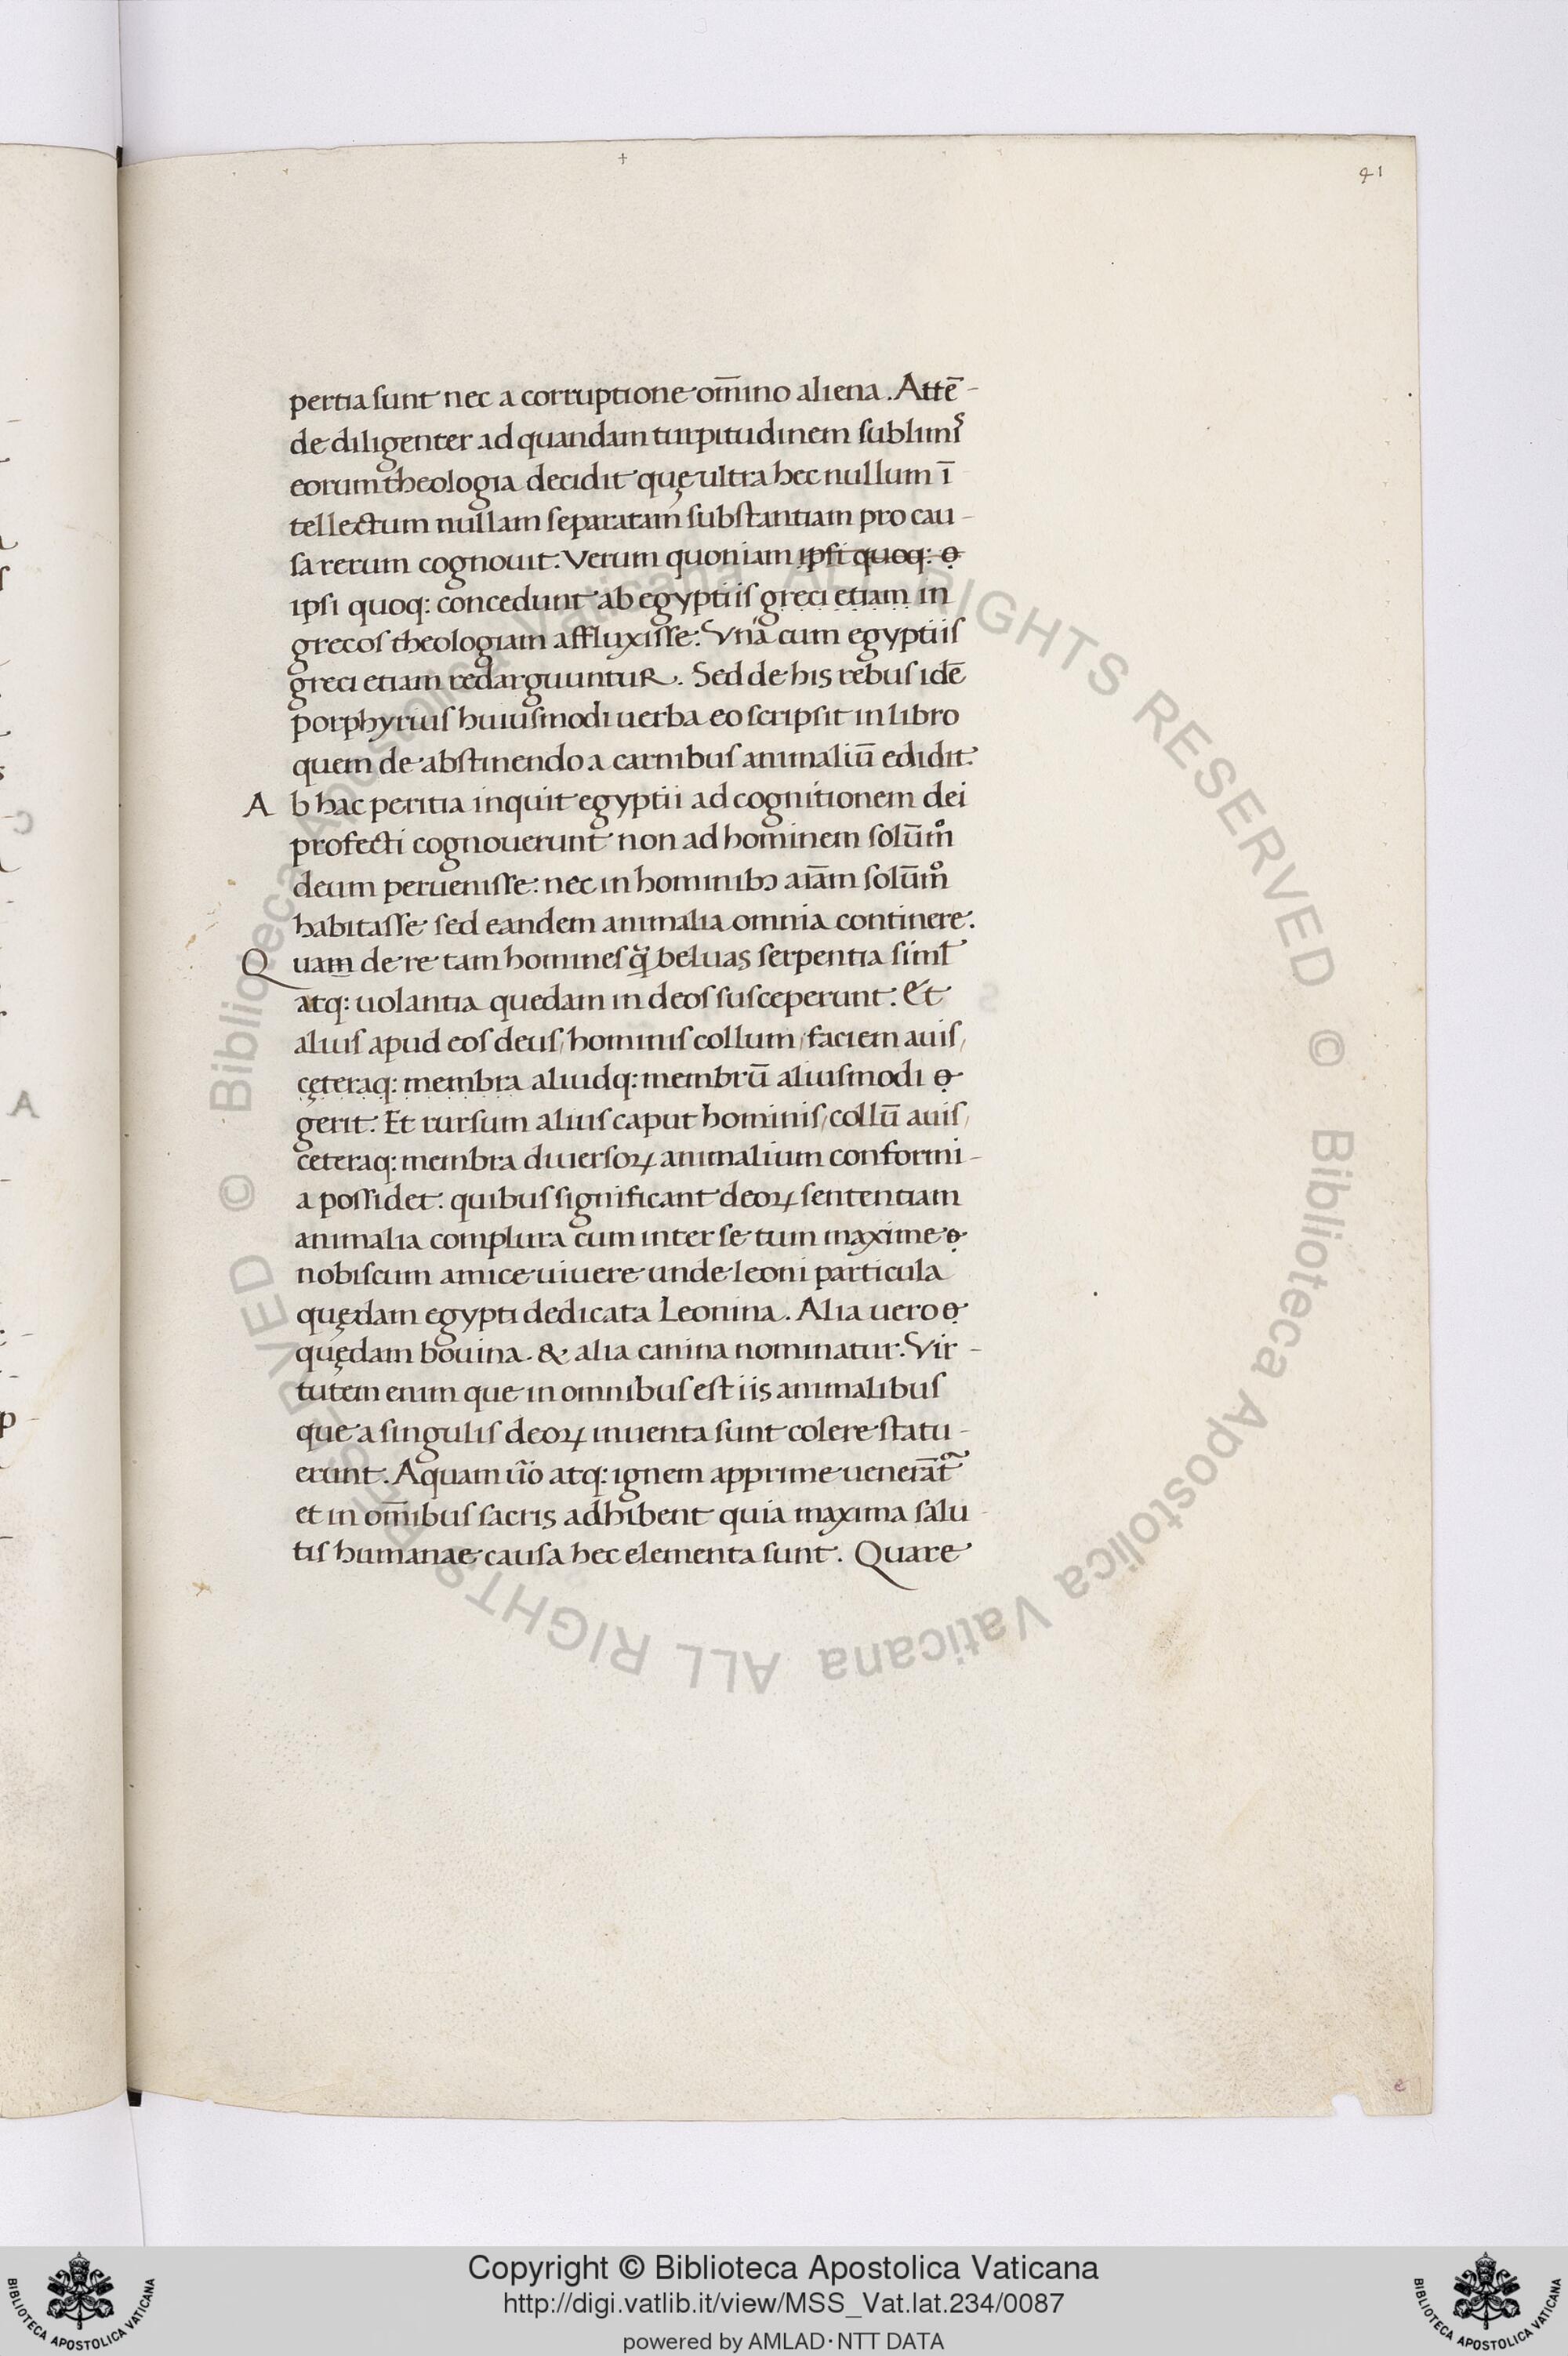 41
pertia sunt nec a corruptione om̅ino aliena. Atte̅-
de diligenter ad quandam turpitudinem sublimis
eorum theologia decidit quę ultra hec nullum i̅
tellectum nullam separatam substantiam pro cau-
sa rerum cognouit. Verum quoniam ipsi quoq:
ipsi quoq: concedunt ab egyptiis greci etiam in
grecos theologiam affluxisse: Vna cum egyptiis
greci etiam redarguuntur. Sed de his rebus ide̅
porphyrius huiusmodi uerba eo scripsit in libro
quem de abstinendo a carnibus animaliu̅ edidit.
Ab hac peritia inquit egyptii ad cognitionem dei
profecti cognouerunt non ad hominem solu̅mͦ
deum peruenisse: nec in hominibꝫ aia̅m solu̅mͦ
habitasse sed eandem animalia omnia continere.
Quam de re tam homines qͣ̅ beluas serpentia siml̅
atq: uolantia quedam in deos susceperunt. Et
alius apud eos deus/ hominis collum/ faciem auis/
cęteraq: membra aliudq: membru̅ aliusmodi
gerit. Et rursum alius caput hominis/ collu̅ auis/
ceteraq: membra diuersoꝝ animalium conformi-
a possidet. quibus significant deoꝝ sententiam
animalia complura cum inter se tum maxime
nobiscum amice uiuere unde leoni particula
quędam egypti dedicata Leonina. Alia uero
quędam bouina. & alia canina nominatur. Vir-
tutem enim que in omnibus est iis animalibus
que a singulis deoꝝ inuenta sunt colere statu-
erunt. Aquam u̅o atq: ignem apprime uenera̅t
et in om̅ibus sacris adhibent quia maxima salu
tis humanae causa hec elementa sunt. Quare
© Biblioteca Apostolica Vaticana ALL RIGHTS RESERVED
© Biblioteca Apostolica Vaticana ALL RIGHTS RESERVED
Copyright © Biblioteca Apostolica Vaticana
http://digi.vatlib.it/view/MSS_Vat.lat.234/0087
powered by AMLAD·NTT DATA
BIBLIOTECA APOSTOLICA VATICANA
BIBLIOTECA APOSTOLICA VATICANA